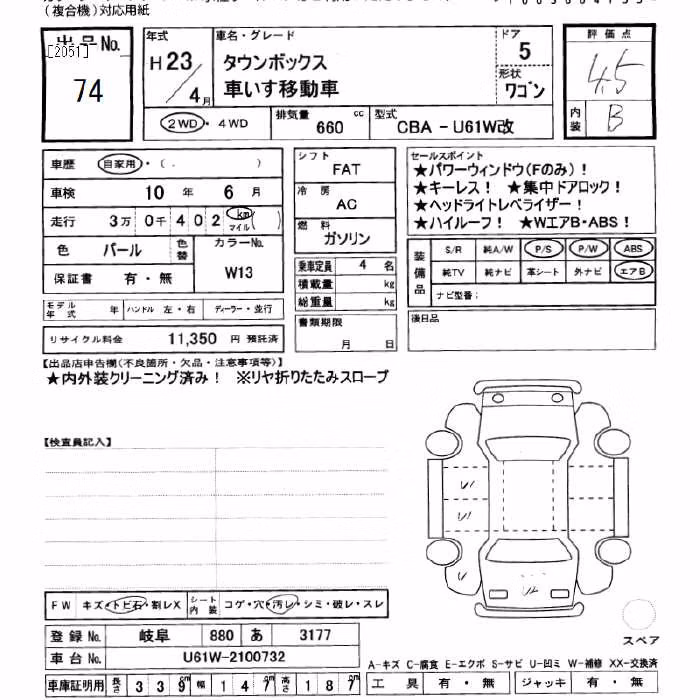 (複合機)対応用紙
出品No.
[2051]
74
年式
H23/4月
車名・グレード
タウンボックス
車いす移動車
ドア
5
形状
ワゴン
評価点
4.5
内装
B
2WD・4WD
排気量
660 cc
型式
CBA - U61W改
車歴 自家用・( . )
車検 10 年 6 月
走行 3万 0千 4 0 2 km マイル ( )
色 パール 色替
カラーNo.
W13
保証書 有・無
モデル年式 年 ハンドル 左・右 ディーラー・並行
リサイクル料金 11,350 円 預託済
シフト
FAT
冷房
AC
燃料
ガソリン
乗車定員 4 名
積載量 kg
総重量 kg
書類期限
月 日
セールスポイント
★パワーウィンドウ(Fのみ)!
★キーレス! ★集中ドアロック!
★ヘッドライトレベライザー!
★ハイルーフ! ★WエアB・ABS!
装備品
S/R 純A/W P/S P/W ABS
純TV 純ナビ 革シート 外ナビ エアB
ナビ型番:
後日品
【出品店申告欄(不良箇所・欠品・注意事項等)】
★内外装クリーニング済み! ※リヤ折りたたみスロープ
【検査員記入】
FW キズ・トビ石・割レX シート内装 コゲ・穴・汚レ・シミ・破レ・スレ
登録No. 岐阜 880 あ 3177
車台No. U61W-2100732
車庫証明用 長さ 3 3 9cm 幅 1 4 7cm 高さ 1 8 7cm
スペア
A-キズ C-腐食 E-エクボ S-サビ U-凹ミ W-補修 XX-交換済
工具 有・無 ジャッキ 有・無